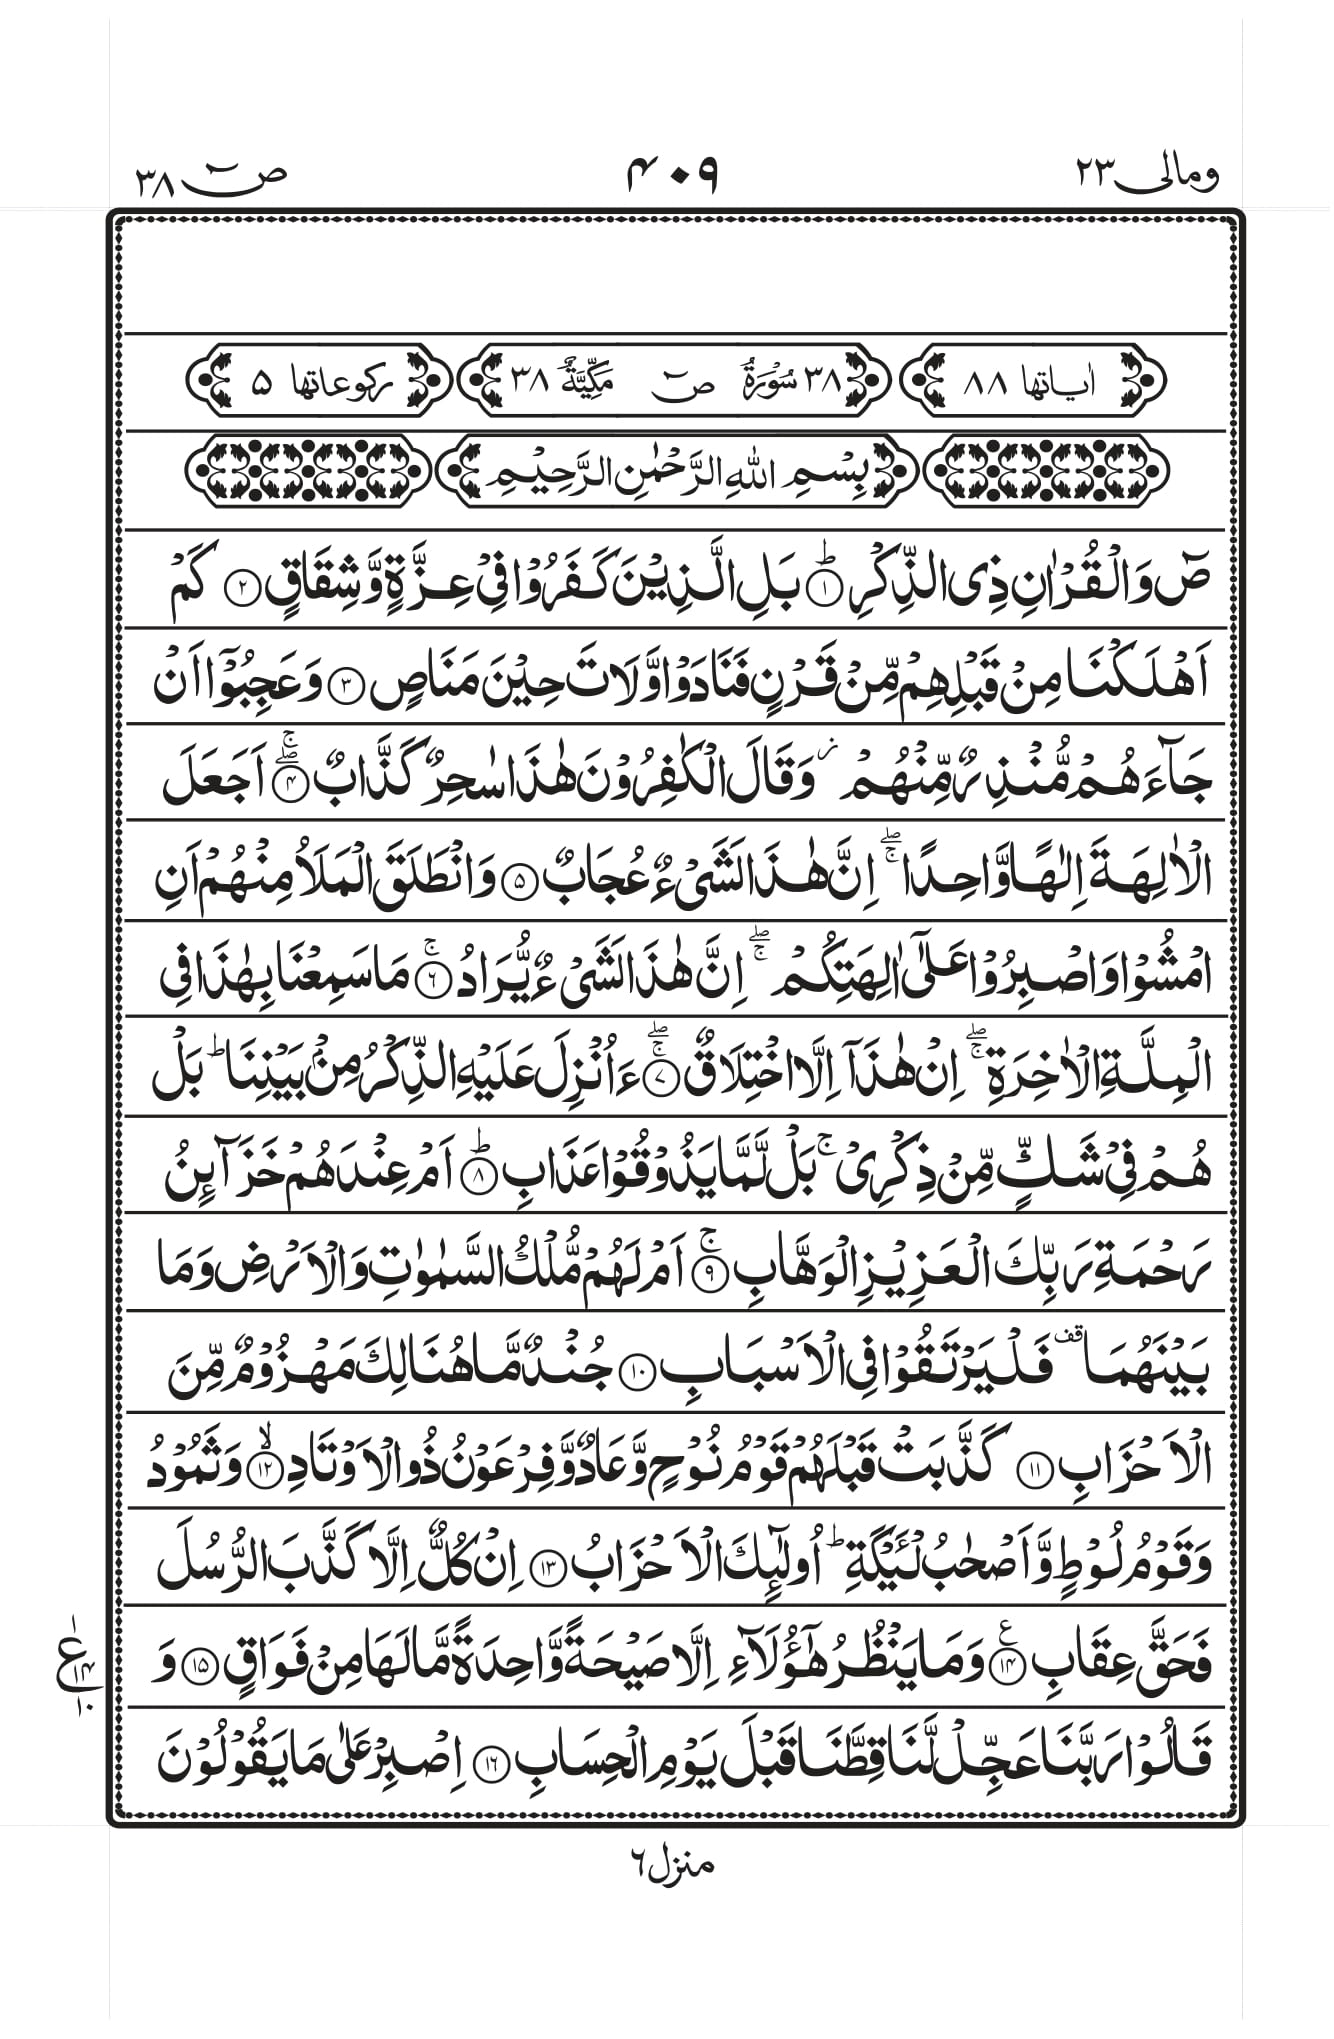 ومالی ۲۳ ۴۰۹ صٓ ۳۸
اٰیاتها ۸۸ ۳۸ سُوْرَةُ صٓ مَكِّيَّةٌ ۳۸ رکوعاتها ۵
بِسْمِ اللهِ الرَّحْمٰنِ الرَّحِيْمِ
صٓ وَالْقُرْاٰنِ ذِی الذِّكْرِ ؕ﴿۱﴾ بَلِ الَّذِيْنَ كَفَرُوْا فِیْ عِزَّةٍ وَّشِقَاقٍ ﴿۲﴾ كَمْ
اَهْلَكْنَا مِنْ قَبْلِهِمْ مِّنْ قَرْنٍ فَنَادَوْا وَّلَاتَ حِيْنَ مَنَاصٍ ﴿۳﴾ وَعَجِبُوْٓا اَنْ
جَآءَهُمْ مُّنْذِرٌ مِّنْهُمْ ؗ وَقَالَ الْكٰفِرُوْنَ هٰذَا سٰحِرٌ كَذَّابٌ ۖۚ﴿۴﴾ اَجَعَلَ
الْاٰلِهَةَ اِلٰهًا وَّاحِدًا ۖۚ اِنَّ هٰذَا لَشَیْءٌ عُجَابٌ ﴿۵﴾ وَانْطَلَقَ الْمَلَاُ مِنْهُمْ اَنِ
امْشُوْا وَاصْبِرُوْا عَلٰٓی اٰلِهَتِكُمْ ۖۚ اِنَّ هٰذَا لَشَیْءٌ يُّرَادُ ۚ﴿۶﴾ مَا سَمِعْنَا بِهٰذَا فِی
الْمِلَّةِ الْاٰخِرَةِ ۖۚ اِنْ هٰذَآ اِلَّا اخْتِلَاقٌ ۖۚ﴿۷﴾ ءَاُنْزِلَ عَلَيْهِ الذِّكْرُ مِنْۢ بَيْنِنَا ؕ بَلْ
هُمْ فِیْ شَكٍّ مِّنْ ذِكْرِیْ ۚ بَلْ لَّمَّا يَذُوْقُوْا عَذَابِ ؕ﴿۸﴾ اَمْ عِنْدَهُمْ خَزَآئِنُ
رَحْمَةِ رَبِّكَ الْعَزِيْزِ الْوَهَّابِ ۚ﴿۹﴾ اَمْ لَهُمْ مُّلْكُ السَّمٰوٰتِ وَالْاَرْضِ وَمَا
بَيْنَهُمَا قف فَلْيَرْتَقُوْا فِی الْاَسْبَابِ ﴿۱۰﴾ جُنْدٌ مَّا هُنَالِكَ مَهْزُوْمٌ مِّنَ
الْاَحْزَابِ ﴿۱۱﴾ كَذَّبَتْ قَبْلَهُمْ قَوْمُ نُوْحٍ وَّعَادٌ وَّفِرْعَوْنُ ذُو الْاَوْتَادِ ۙ﴿۱۲﴾ وَثَمُوْدُ
وَقَوْمُ لُوْطٍ وَّاَصْحٰبُ لْـَٔيْكَةِ ؕ اُولٰٓئِكَ الْاَحْزَابُ ﴿۱۳﴾ اِنْ كُلٌّ اِلَّا كَذَّبَ الرُّسُلَ
فَحَقَّ عِقَابِ ﴿۱۴﴾ ع وَمَا يَنْظُرُ هٰٓؤُلَآءِ اِلَّا صَيْحَةً وَّاحِدَةً مَّا لَهَا مِنْ فَوَاقٍ ﴿۱۵﴾ وَ
۱ ع ۱۴ ۱۰
قَالُوْا رَبَّنَا عَجِّلْ لَّنَا قِطَّنَا قَبْلَ يَوْمِ الْحِسَابِ ﴿۱۶﴾ اِصْبِرْ عَلٰی مَا يَقُوْلُوْنَ
منزل ۶